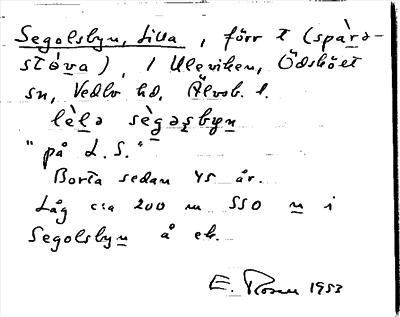 Segolsbyn, Lilla, förr t (spàrə-
stóva), i Uleviken, Ödsköt
sn, Vedbo hd, Älvsb. l.
lèlə sègəsbyn
"på L. S."
Borta sedan 45 år.
Låg c:a 200 m SSO n i
Segolsbyn å ek.
E. Rosen 1953